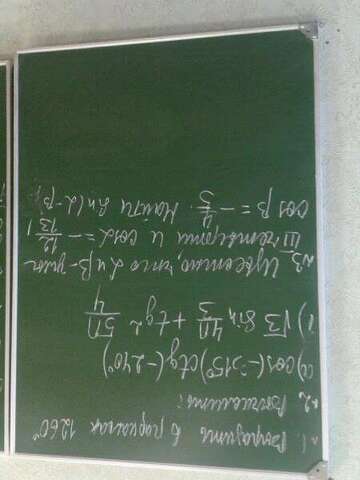 N1. Выразить в радианах 1260°
N2. Вычислить:
а) cos(-315°)ctg(-240°)
б) √3 sin 4π/3 + tg² 5π/4
N3. Известно, что α и β - углы
III четверти и cosα = -12/13,
cos β = -4/5. Найти sin(α-β)